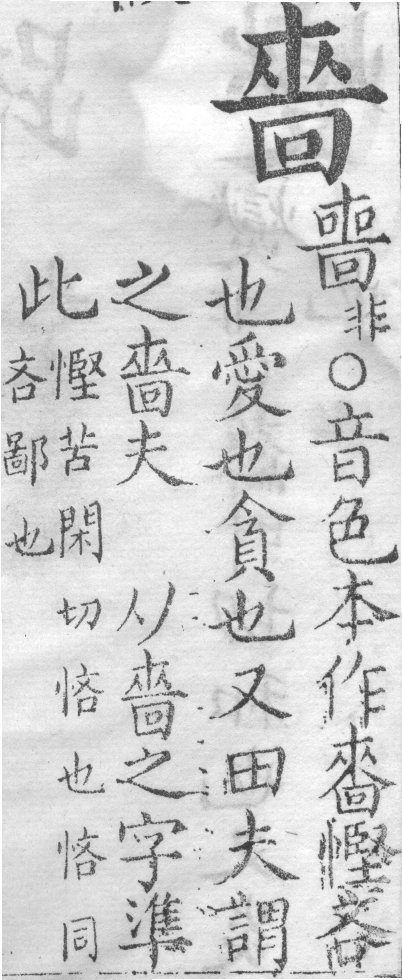 嗇
非○音色本作嗇慳吝
也愛也貪也又田夫謂
之嗇夫　从嗇之字準
此
慳苦閑切悋也悋同
吝鄙也